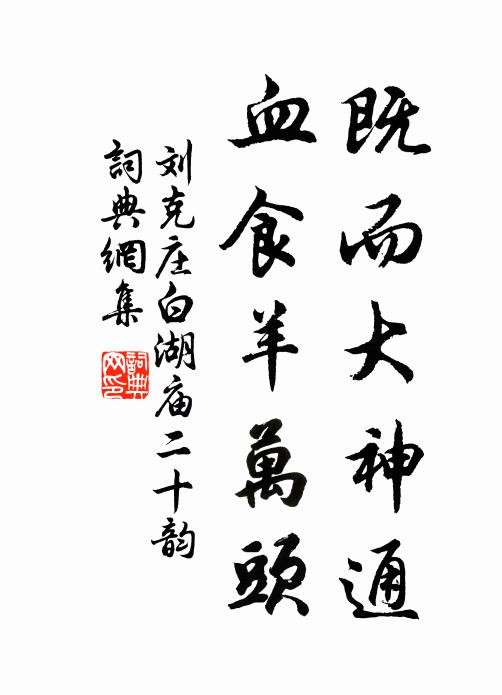 既而大神通
血食羊萬頭
刘克庄白湖庙二十韵
詞典網集
詞典网印